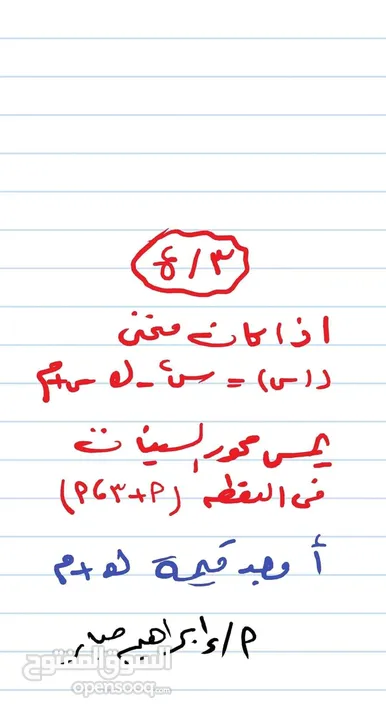 ٤/٣
اذا كان منحنى
د(س) = س٢ - ك س + م
يمس محور السينات
فى النقطه (م+٣، م)
أوجد قيمة ك + م
م/ إبراهيم صابر
السوق المفتوح
opensooq.com